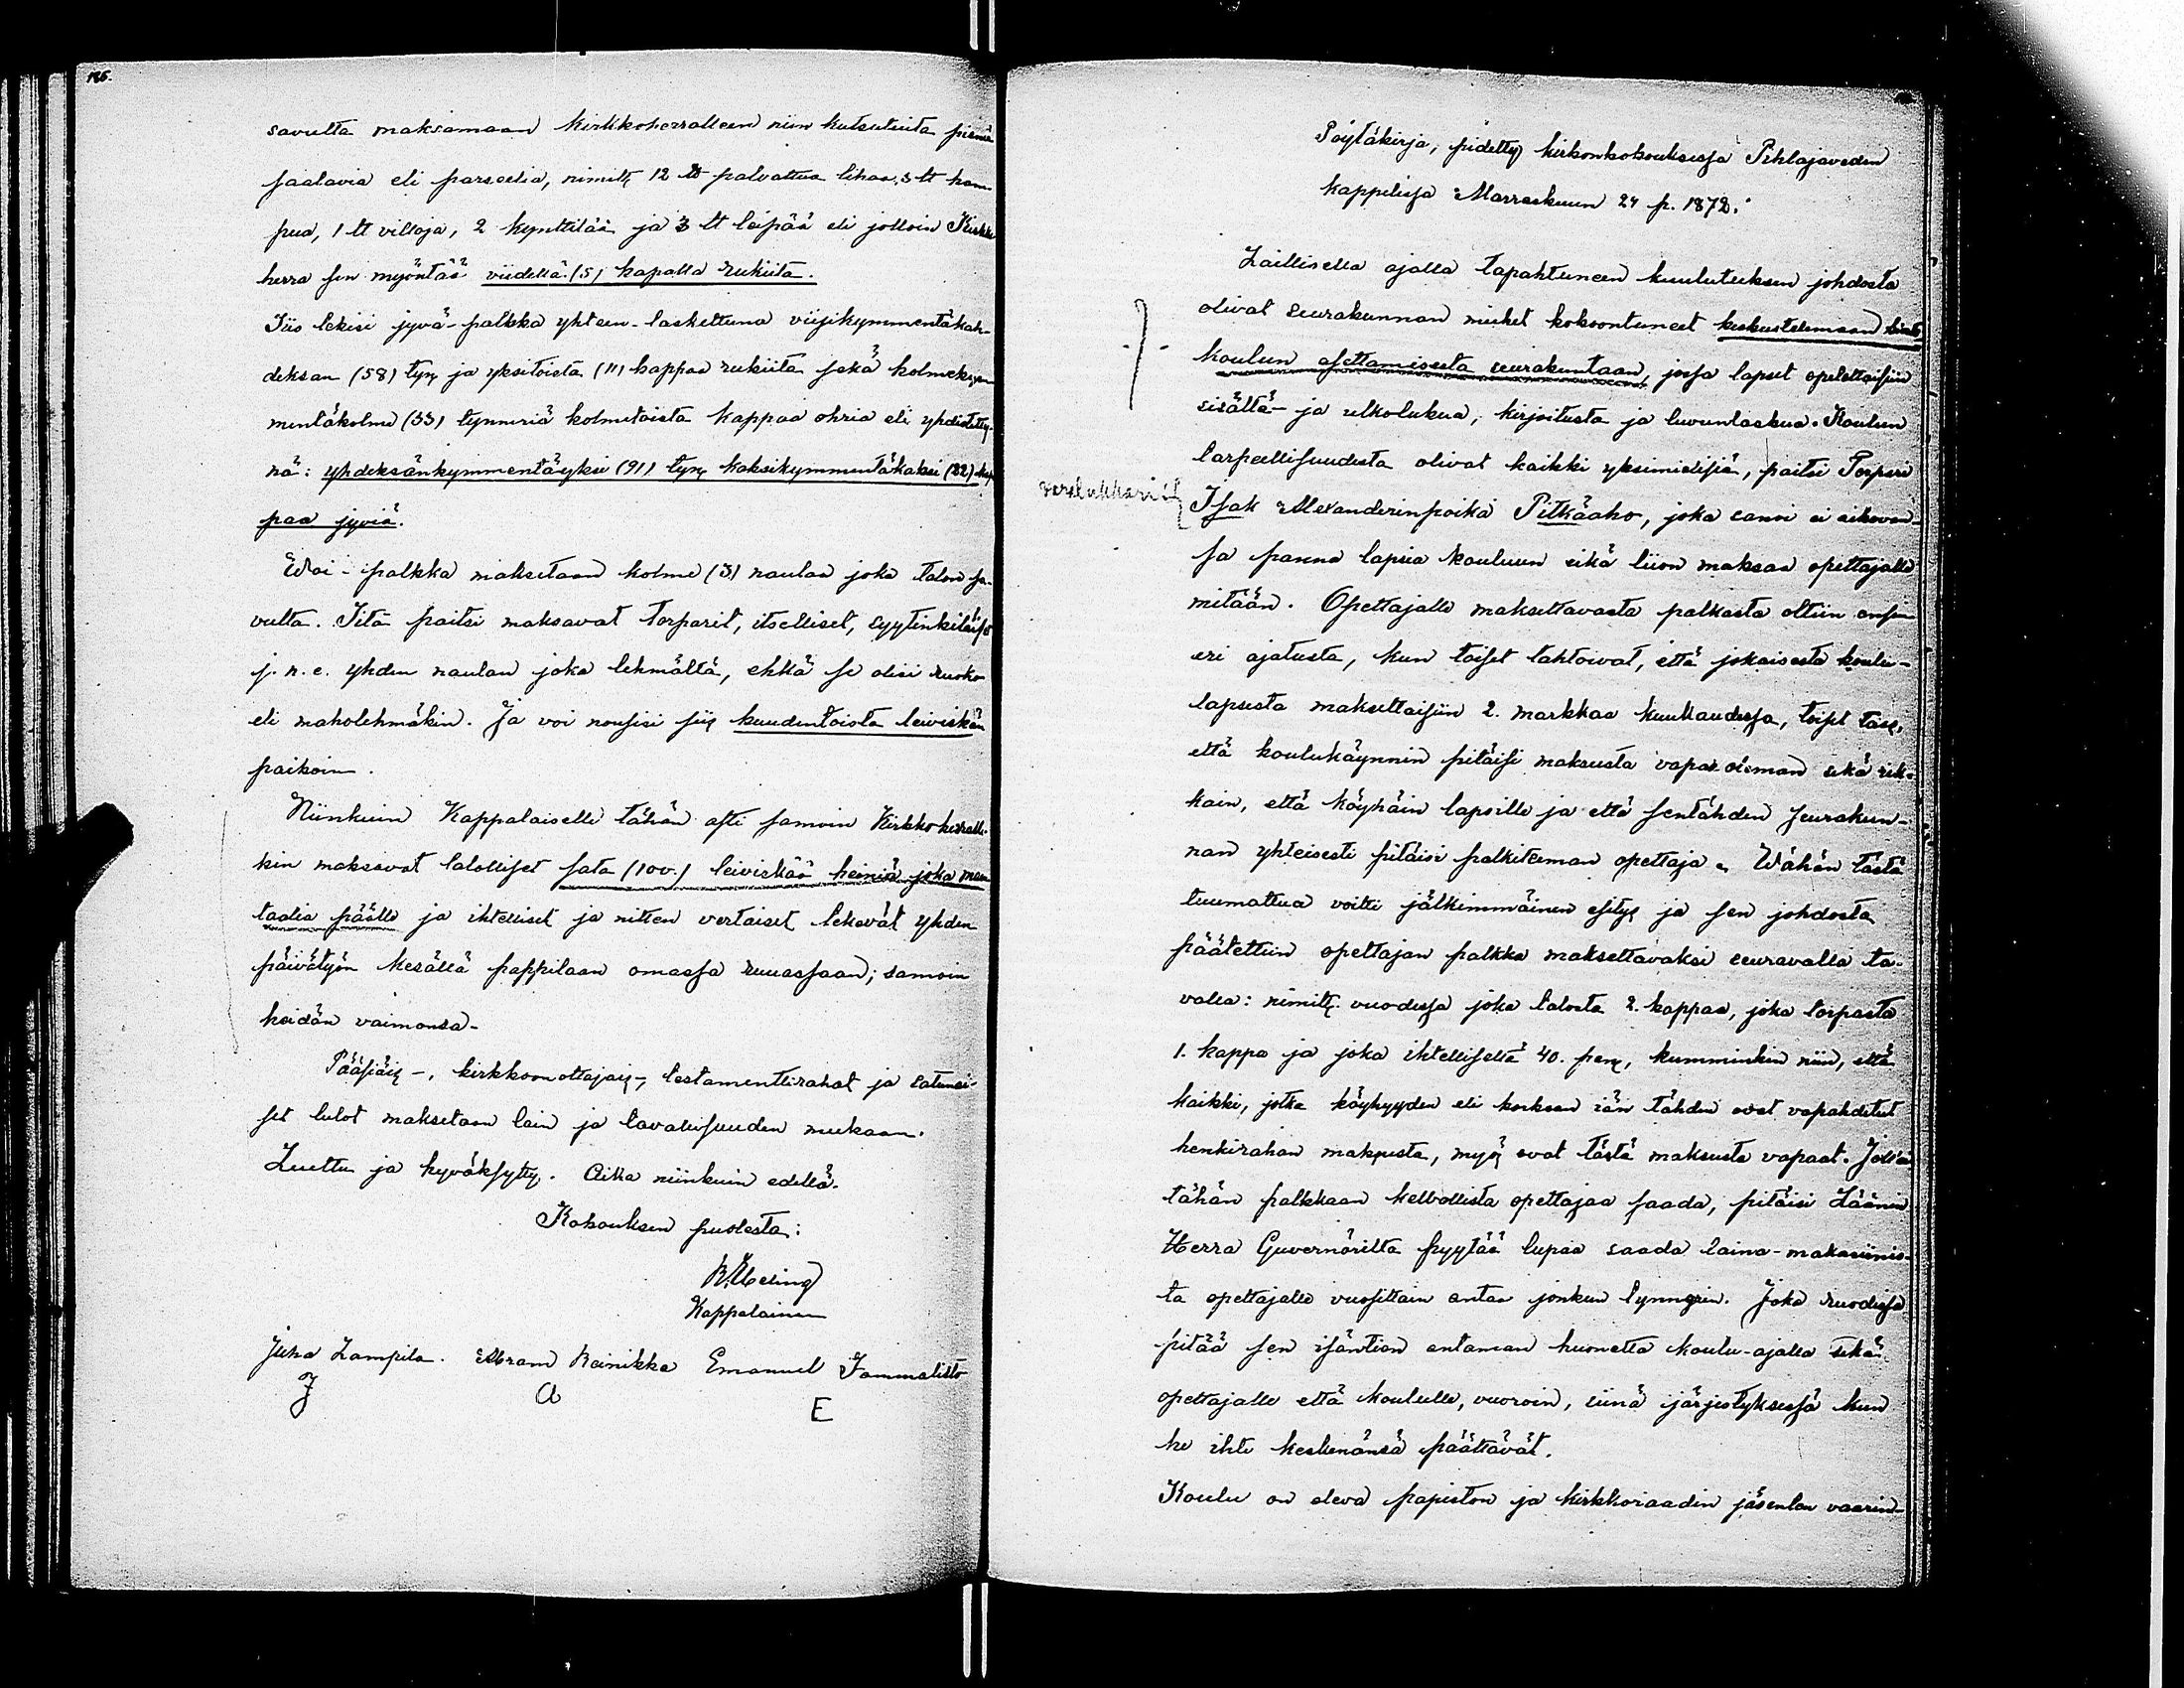 186.
savulta maksamaan Kirkkoherralleen niin kutsutuita pieniä
saatavia eli parseelia, nimitt. 12 lt palvattua lihaa, 3 lt ham
pua, 1 lt villoja, 2 kynttilää ja 3 lt leipää eli jolloin Kirkko
herra sen myöntää viidellä (5) kapalla rukiita.
Siis tekisi jyvä-palkka yhteen-laskettuna viisikymmentäkah-
deksan (58) tynn. ja yksitoista (11) kappaa rukiita sekä kolmekym
mentäkolme (33) tynneriä kolmetoista kappaa ohria eli yhdistetty-
nä: yhdeksänkymmentäyksi (91) tynn. kaksikymmentäkaksi (22) kap
paa jyviä.
Woi-palkka maksetaan kolme (3) naulaa joka talon sa-
vulta. Sitä paitsi maksavat torparit, itselliset, syytinkiläiset
j. n. e. yhden naulan joka lehmältä, ehkä se olisi ruoko
eli maholehmäkin. Ja voi nousisi siis kuudentoista leiviskän
paikoin.
Niinkuin Kappalaiselle tähän asti samoin Kirkkoherralle-
kin maksavat talolliset sata (100.) leiviskää heiniä joka man
taalia päälle ja ihtelliset ja niitten vertaiset tekevät yhden
päivätyön kesällä pappilaan omassa ruuassaan; samoin
heidän vaimonsa-
Pääsiäis-, kirkkoonottajais-, testamenttirahat ja satunai-
set tulot maksetaan lain ja tavallisuuden mukaan.
Luettu ja hyväksytty. Aika niinkuin edellä.
Kokouksen puolesta:
Kappalainen
Juha Lampila. Abram Reinikka Emanuel Tammalisto
J A E
Pöytäkirja, pidetty kirkonkokouksessa Pihlajaveden
kappelissa Marraskuun 24 p. 1872.
Laillisella ajalla tapahtuneen kuulutuksen johdosta
olivat seurakunnan miehet kokoontuneet keskustelemaan
koulun asettamisesta seurakuntaan, jossa lapset opetettaisiin
sisältä- ja ulkolukua, kirjoitusta ja luvunlaskua. Koulun
tarpeellisuudesta olivat kaikki yksimielisiä, paitsi Torpari
Isak Alexanderinpoika Pitkäaho, joka sanoi ei aikovan-
sa panna lapsia kouluun eikä liion maksaa opettajalle
mitään. Opettajalle maksettavasta palkasta oltiin ensin
eri ajatusta, kun toiset tahtoivat, että jokaisesta koulu-
lapsesta maksettaisiin 2. markkaa kuukaudessa, toiset taas,
että koulukäynnin pitäisi maksusta vapaa oleman sekä rik-
kain, että köyhäin lapsille ja että sentähden seurakun-
nan yhteisesti pitäisi palkitseman opettaja. Wähän tästä
tuumattua voitti jälkimmäinen esitys ja sen johdosta
päätettiin opettajan palkka maksettavaksi seuravalla ta-
valla: nimitt. vuodessa joka talosta 2. kappaa, joka torpasta
1. kappa ja joka ihtelliseltä 40. pen., kumminkin niin, että
kaikki, jotka köyhyyden eli korkean iän tähden ovat vapahdetut
henkirahan maksusta, myös ovat tästä maksusta vapaat. Jollei
tähän palkkaan kelvollista opettajaa saada, pitäisi Läänin
Herra Guvernöriltä pyytää lupaa saada laina-makasiinis-
ta opettajalle vuosittain antaa jonkun tynnyrin. Joka ruodissa
pitää sen isäntien antaman huonetta koulu-ajalla sekä
opettajalle että koululle, vuoroin, siinä järjestyksessä kun
he ihte keskenänsä päättävät.
Koulu on oleva papiston ja kirkkoraadin jäsenten vaarin-